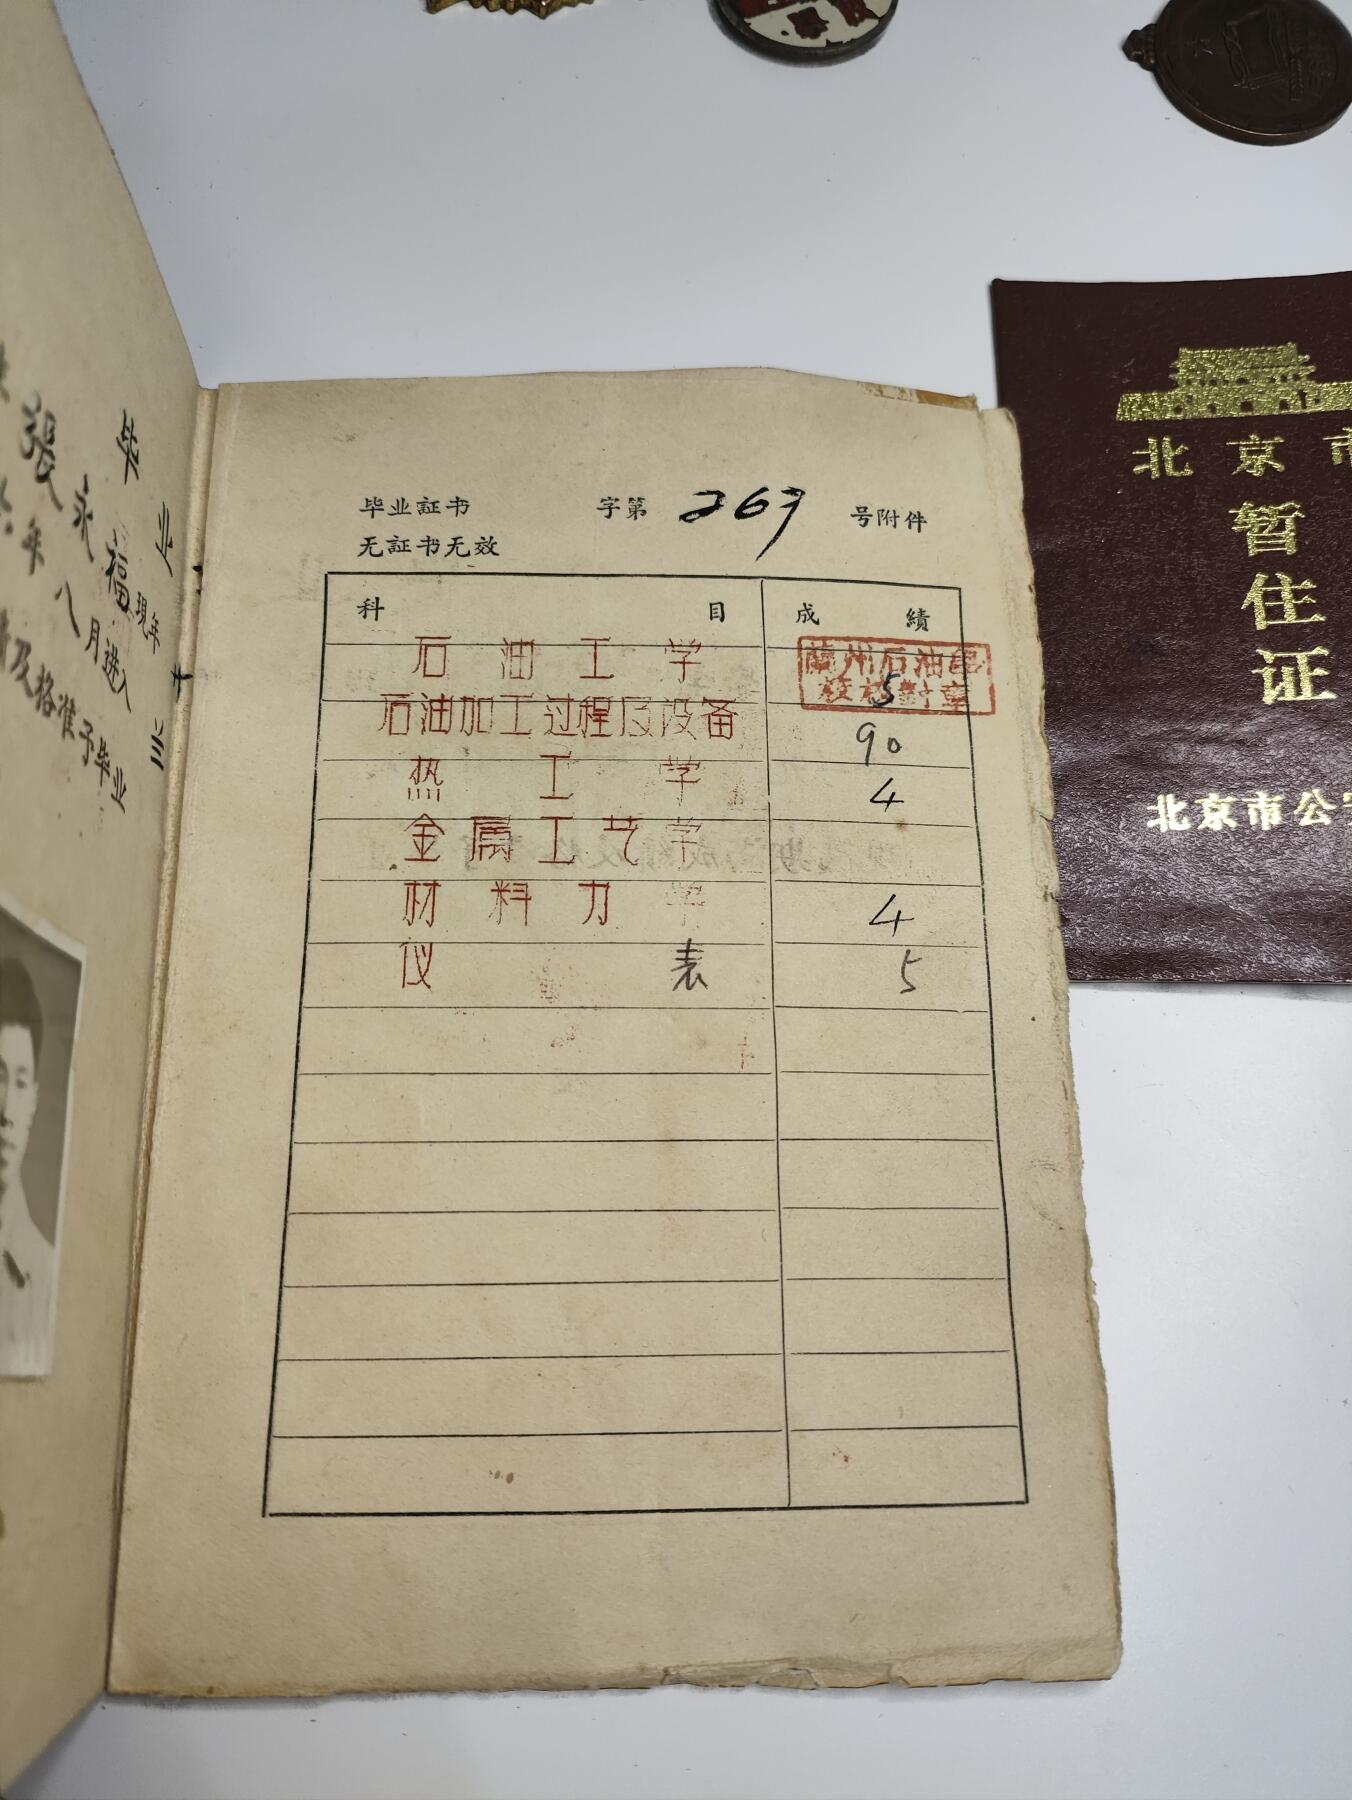 毕业
張永福 現年 三十
年八月进入
及格准予毕业
毕业証书 字第 267 号附件
无証书无效
科 目 成 績
石油工学 5
蘭州石油
校 对章
石油加工过程及设备 90
热工学 4
金属工艺学
材料力学 4
仪表 5
北京市
暂住证
北京市公